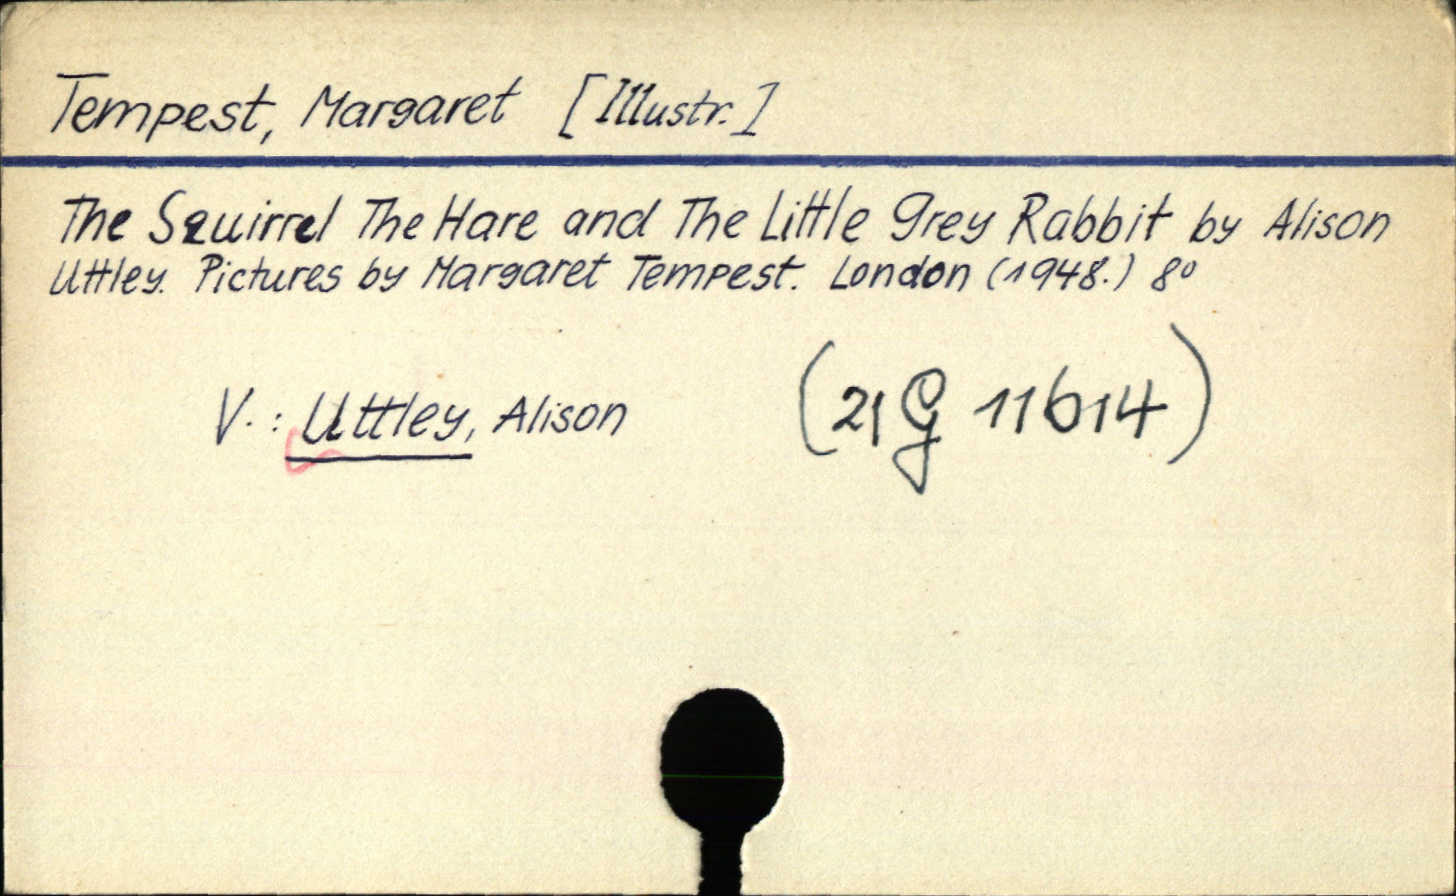 Tempest, Margaret [Illustr.]
The Squirrel The Hare and The Little Grey Rabbit by Alison
Uttley. Pictures by Margaret Tempest. London (1948.) 8°
V.: Uttley, Alison
(21 G 11614)